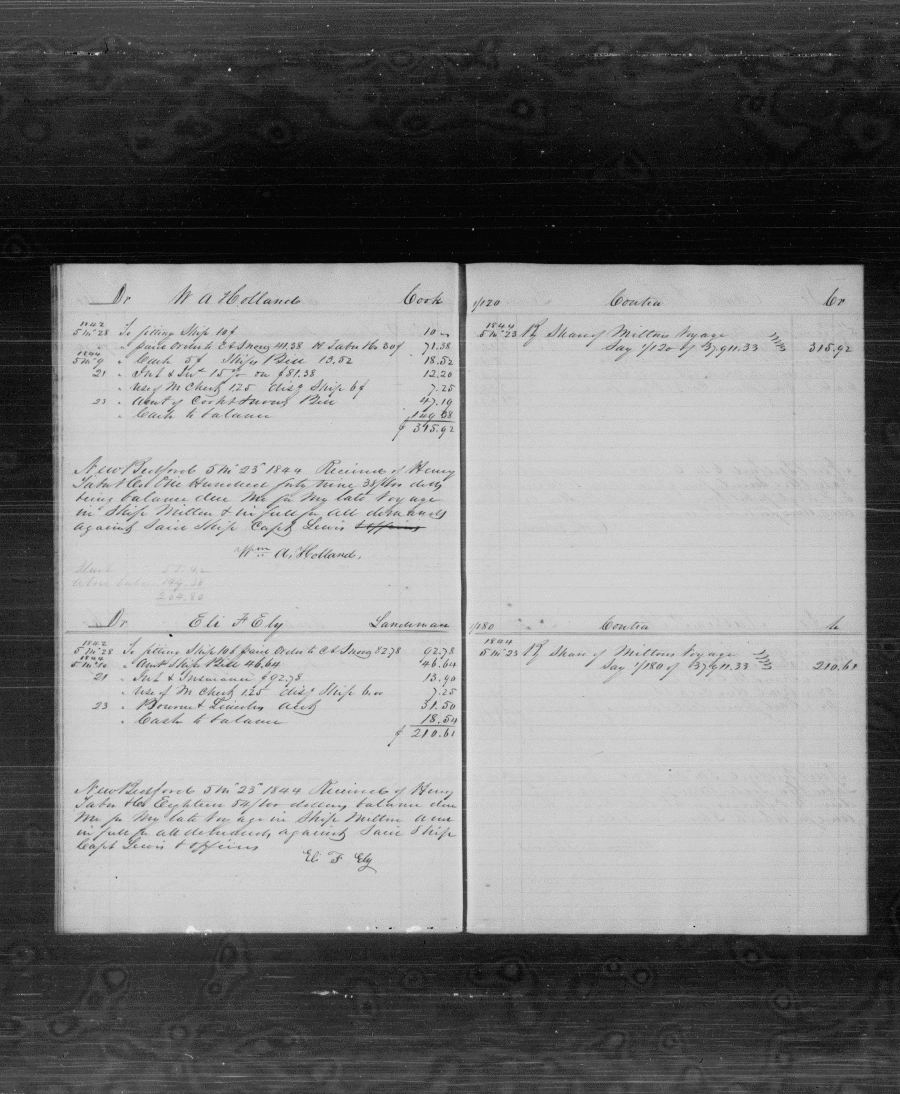 Dr W A Holland Cook
1842
5 mo 28 To fitting Ship 10$ 10 "
" " paid Orders C & Snong 41.38 H Taber & Co 30$ 71.38
1844
5 mo 9 " Cash 5$ Ships Bill 13.52 18.52
21 " Int & Ins 15 on $81.38 12.20
" Use of M Chest 1.25 disg Ship 6$ 7.25
23 " Amt of Cook & Bill 47.19
" Cash to balance 149.38
$ 315.92
New Bedford 5 mo 23 1844 Received of Henry
Taber & Co One Hundred forty nine 38/100 dolls
being balance due Me for My late Voyage
in Ship Milton & in full for all demands
against Said Ship Capt Lewis & officers
Wm A. Holland.
149.38
Dr Eli F Ely Landsman
1842
5 mo 28 To fitting Ship 10$ paid Orders to C & Snong 82.78 92.78
1844
5 mo " Amt Ships Bill 46.64 46.64
21 " Int & Insurance $92.78 13.90
" Use of M Chest 1.25 disg Ship 6.00 7.25
23 " Bourne & Lincoln acct 31.50
" Cash to balance 18.54
$ 210.61
New Bedford 5 mo 23 1844 Received of Henry
Taber & Co Eighteen 54/100 dollars balance due
Me for My late Voyage in Ship Milton and
in full for all demands against Said Ship
Capt Lewis & officers
Eli F Ely
1/120 Contra Cr
1844
5 mo 23 By Share of Miltons Voyage
Say 1/120 of 37,911.33 315.92
1/180 Contra Cr
1844
5 mo 23 By Share of Miltons Voyage
Say 1/180 of 37,911.33 210.61